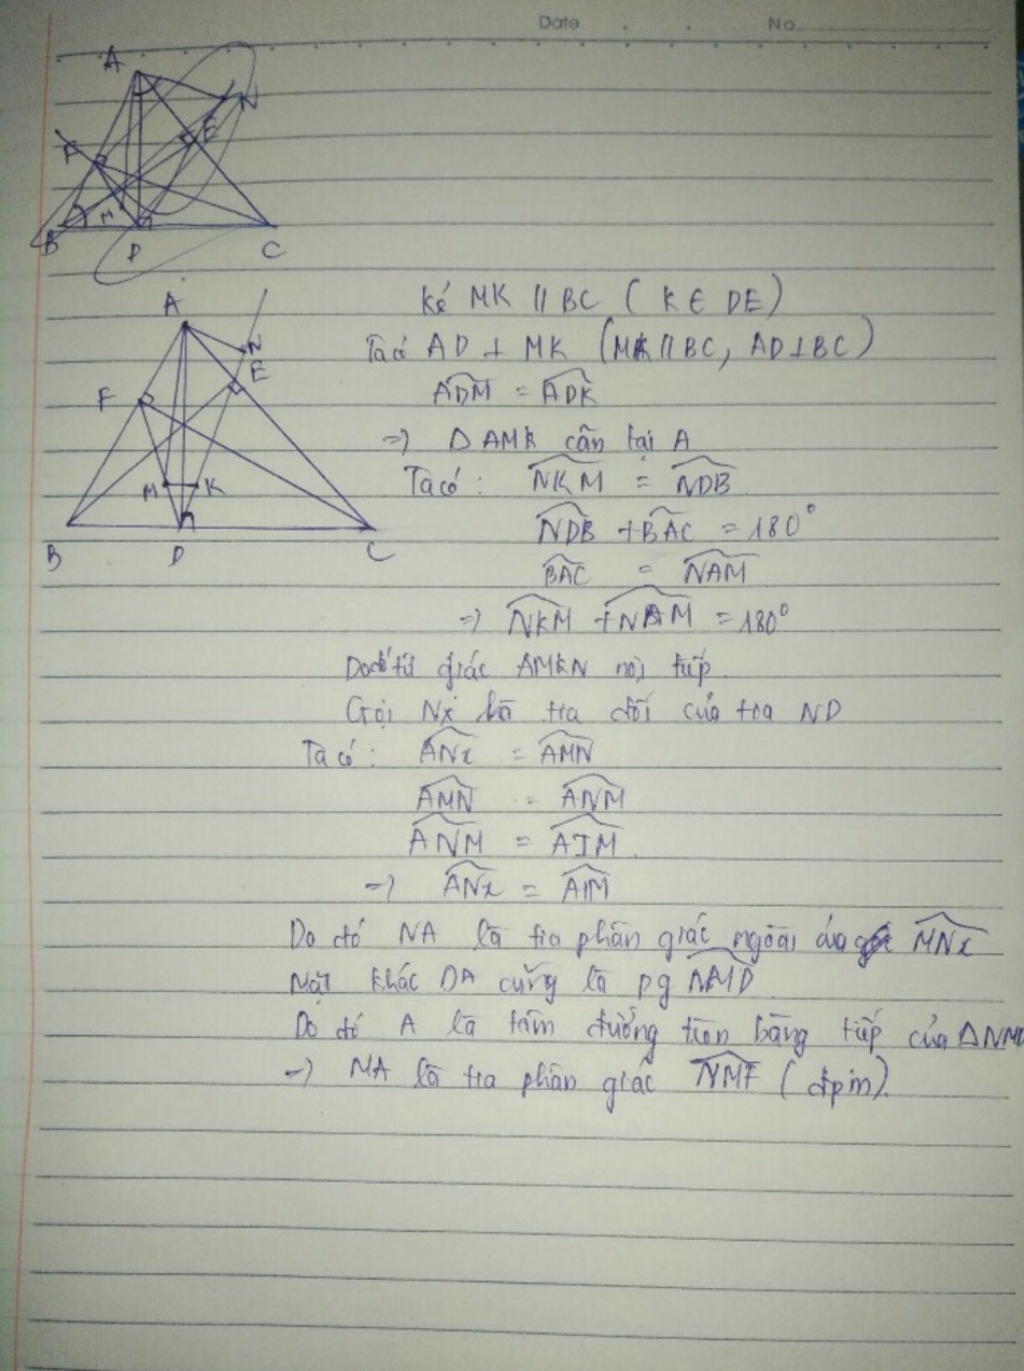 Date No
A
N
E
F
M
B D C
A
N
E
F
M K
B D C
Kẻ MK // BC ( K ∈ DE )
Ta có AD ⊥ MK (MK // BC, AD ⊥ BC)
ADM = ADK
=> Δ AMK cân tại A
Ta có : NKM = NDB
NDB + BAC = 180°
BAC = NAM
=> NKM + NAM = 180°
Do đó tứ giác AMKN nội tiếp
Gọi Nx là tia đối của tia ND
Ta có : ANx = AMN
AMN = ANM
ANM = AIM
=> ANx = AIM
Do đó NA là tia phân giác ngoài của MNx
Mặt khác DA cũng là pg NMD
Do đó A là tâm đường tròn bàng tiếp của Δ NMD
=> MA là tia phân giác NMF ( đpcm).